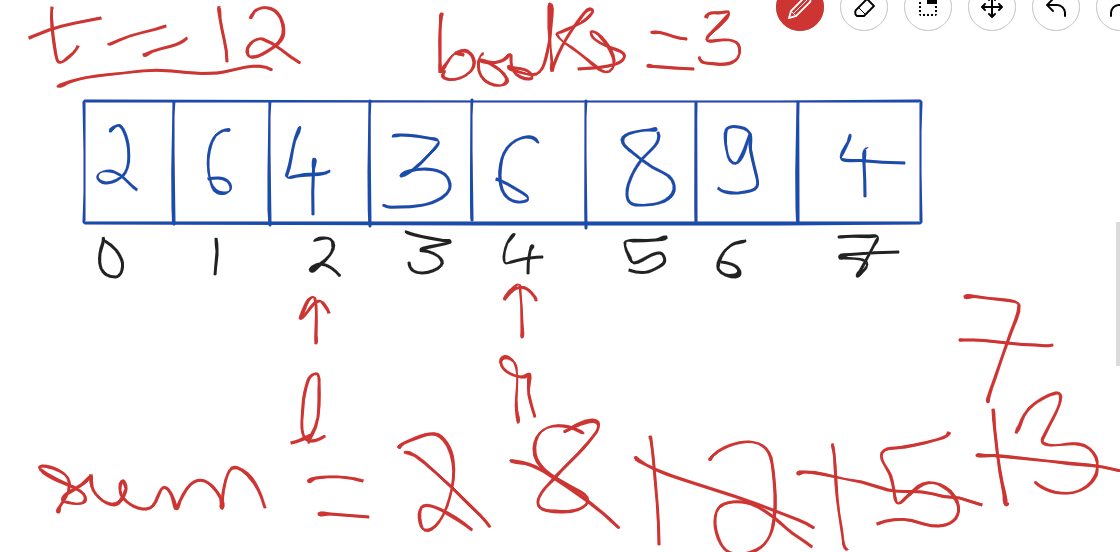 t = 12 books = 3
2 6 4 3 6 8 9 4
0 1 2 3 4 5 6 7
l r
7
sum = 2 8 12 15 13